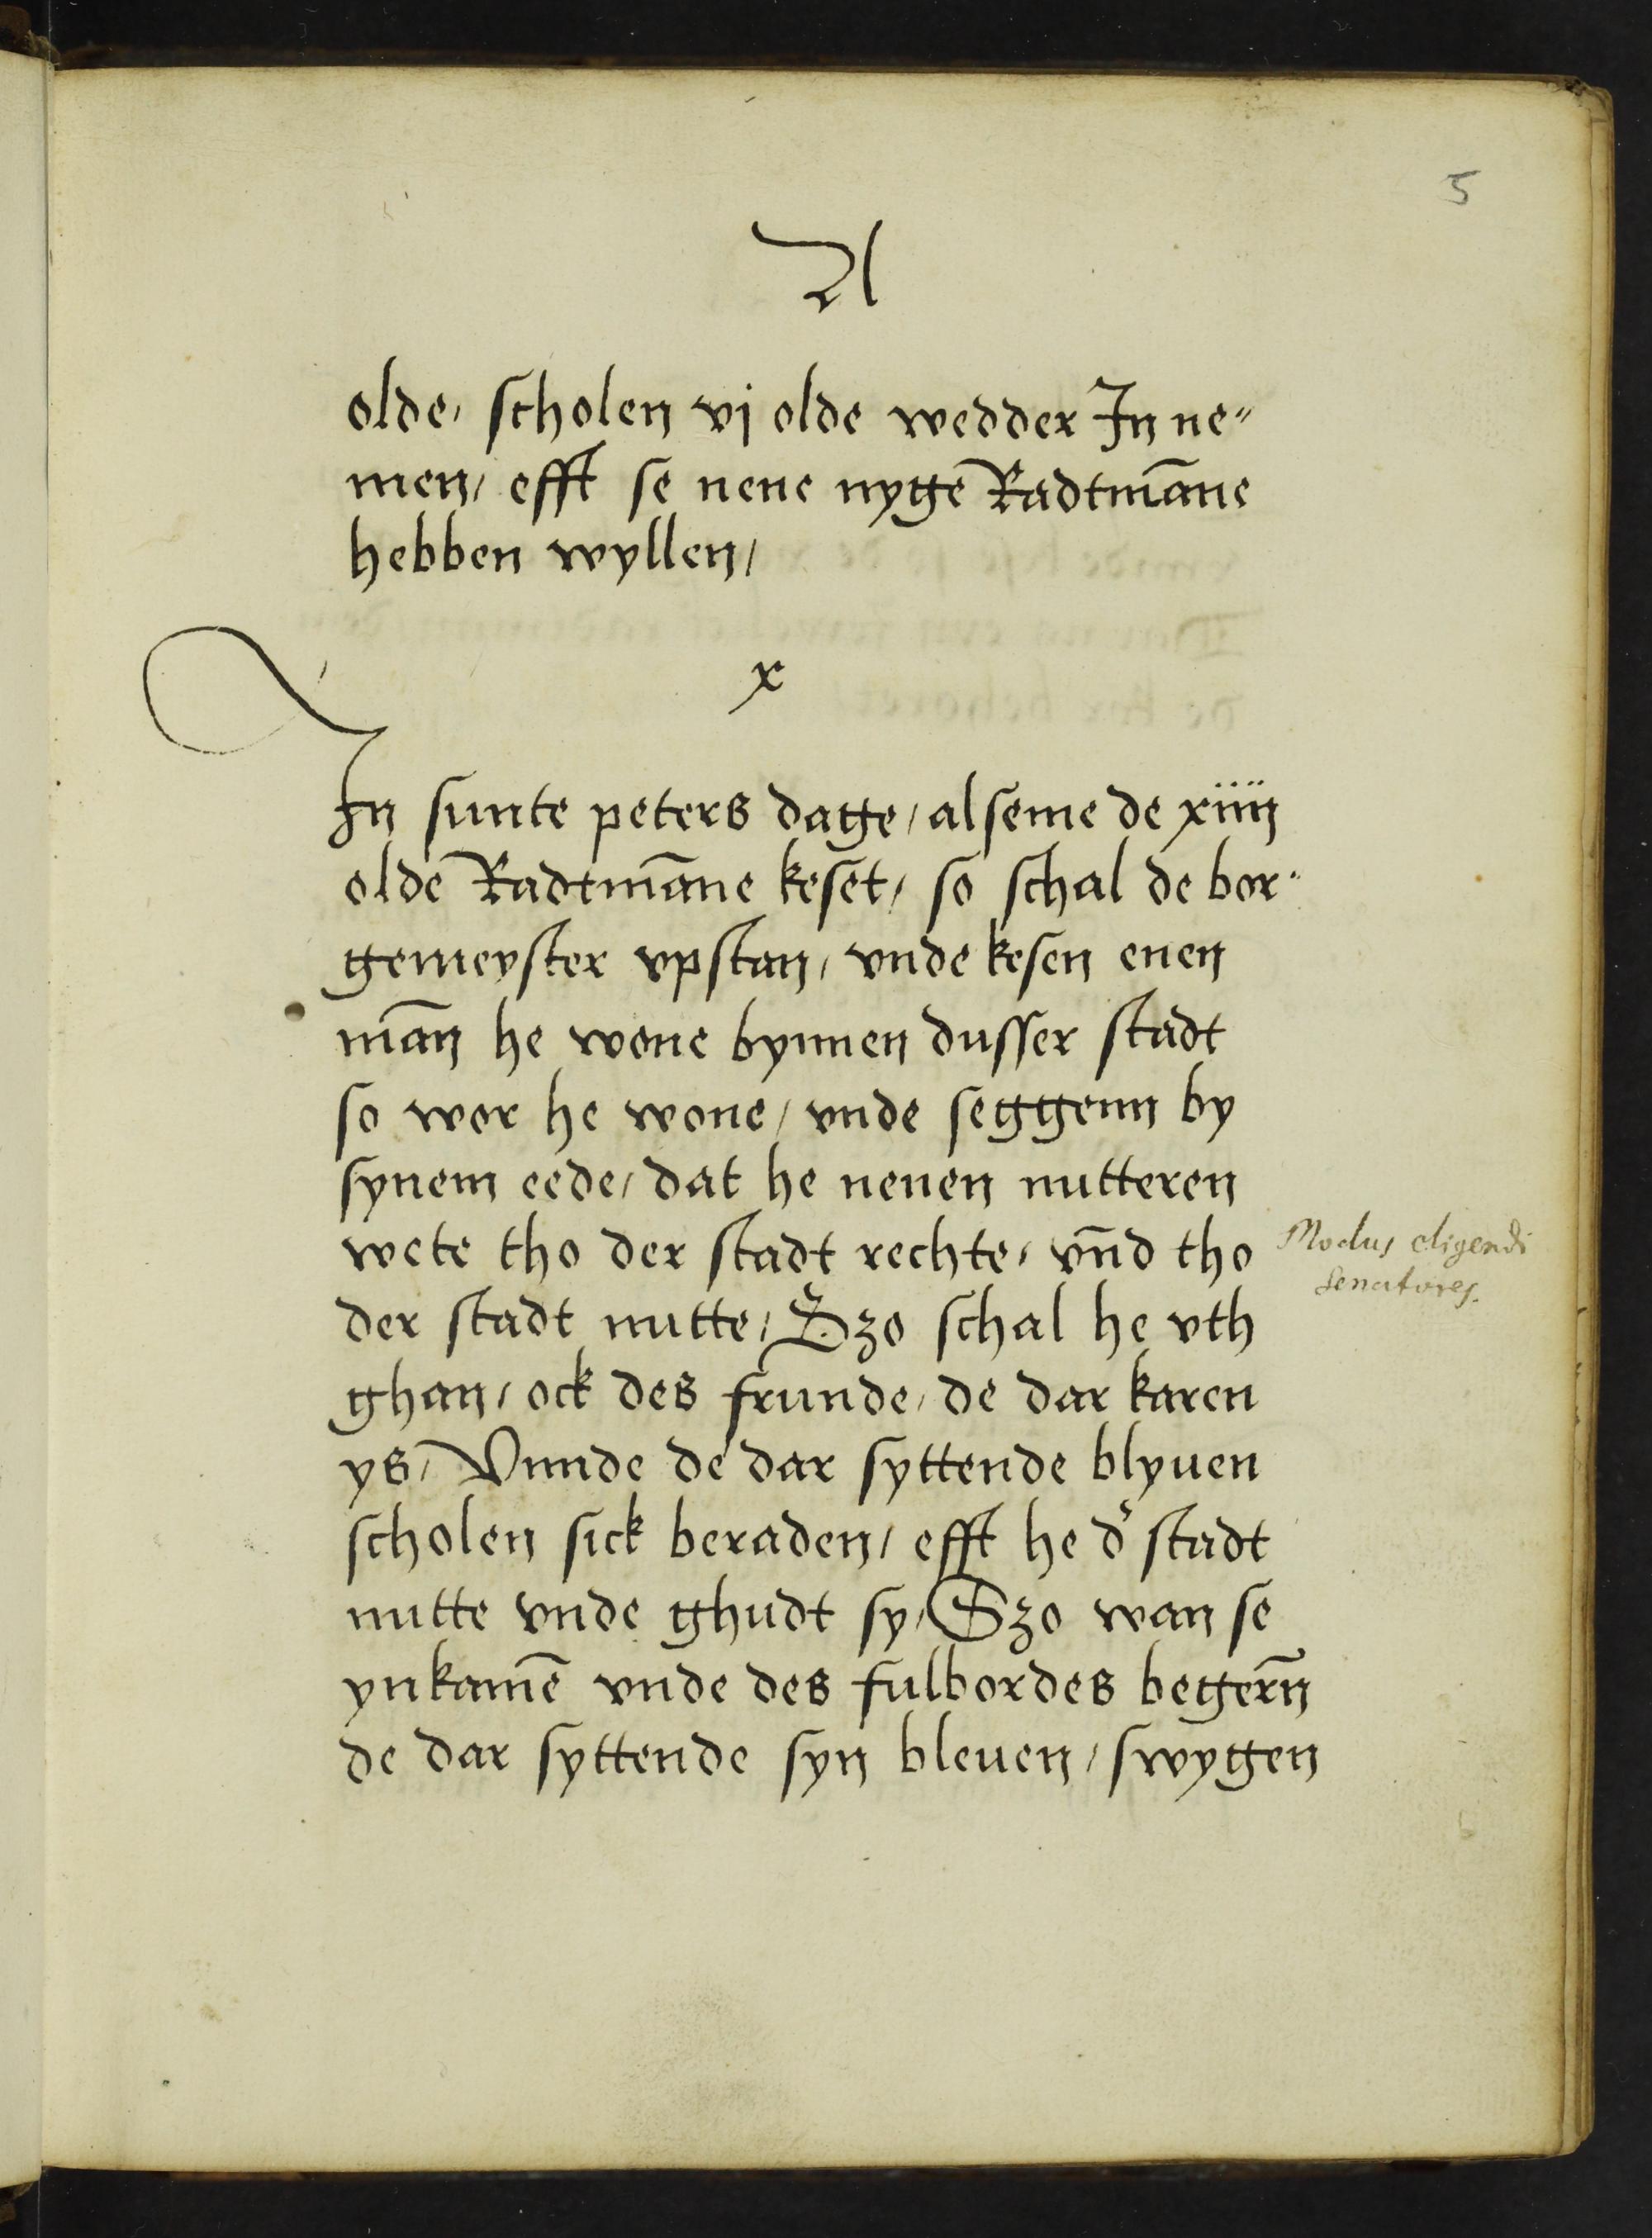 5
A
olde, scholen vj olde wedder In ne„
men, efft se nene nygē Radtmāne
hebben wyllen,
x
In sunte peters dage, alseme de xiiij
oldē Radtmāne keset, so schal de bor„
gemeyster vpstan, vnde kesen enen
mān he wone bynnen dusser stadt
so wor he wone, vnde seggenn by
synem eede, dat he nenen nutteren
wete tho der stadt rechte, vn̄d tho
der stadt nutte, Szo schal he vth
ghan, ock des frunde, de dar karen
ys, Vnnde de dar syttende blyuen
scholen sick beraden, efft he d' stadt
nutte vnde ghudt sy, Szo wan se
ynkamē vnde des fulbordes begern̄
de dar syttende syn bleuen, swygen
Modus eligendi
Senatores.